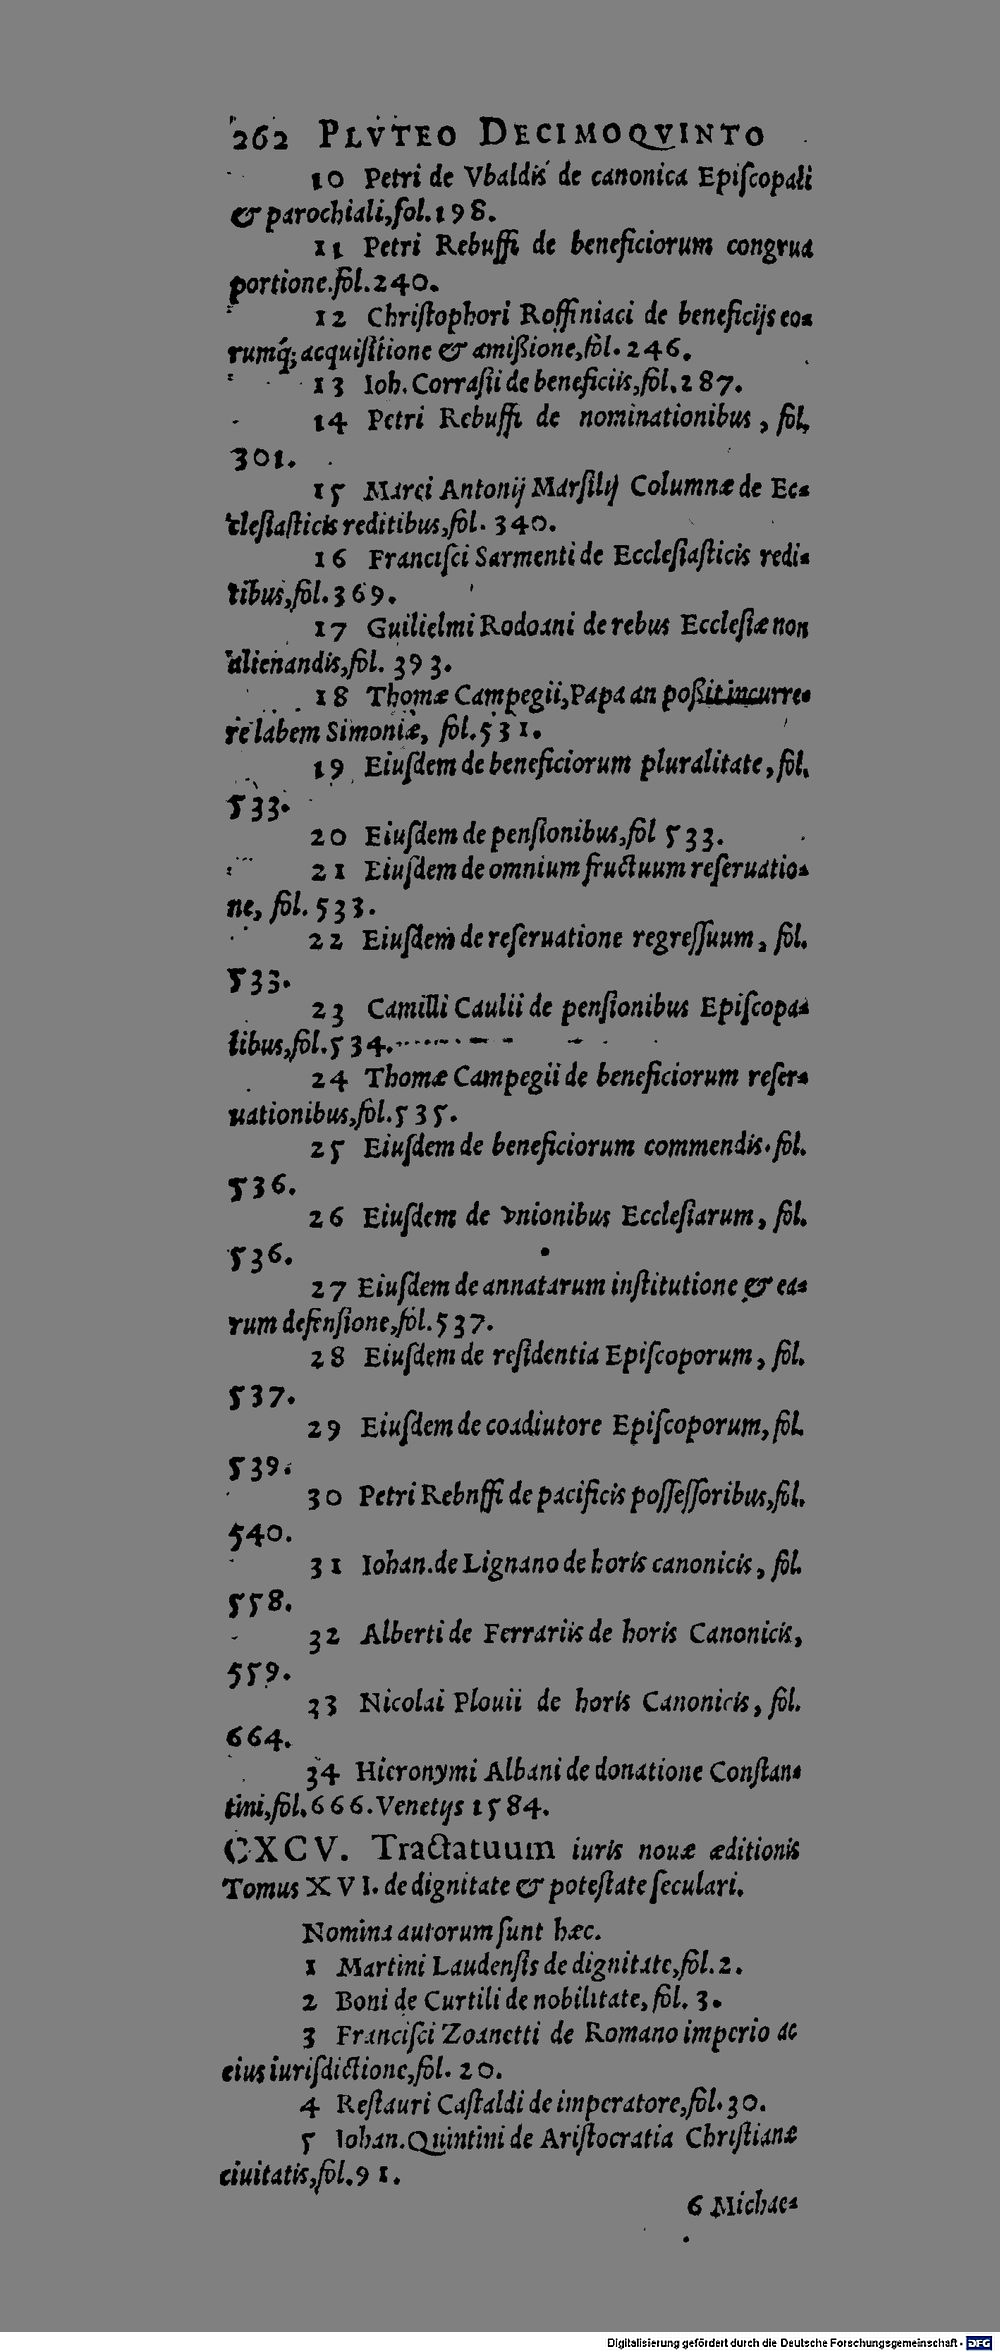 262 PLVTEO DECIMOQVINTO
10 Petri de Vbaldis de canonica Epiſcopali
& parochiali, fol. 198.
11 Petri Rebuffi de beneficiorum congrua
portione. fol. 240.
12 Chriſtophori Roffiniaci de beneficijs eo-
rumq́; acquiſitione & amißione, fol. 246.
13 Ioh. Corraſii de beneficiis, fol. 287.
14 Petri Rebuffi de nominationibus, fol.
301.
15 Marci Antonij Marſilij Columnæ de Ec-
cleſiaſticis reditibus, fol. 340.
16 Franciſci Sarmenti de Eccleſiaſticis redi-
tibus, fol. 369.
17 Guilielmi Rodoani de rebus Eccleſiæ non
alienandis, fol. 393.
18 Thomæ Campegii, Papa an poßit incurre-
re labem Simoniæ, fol. 531.
19 Eiuſdem de beneficiorum pluralitate, fol.
533.
20 Eiuſdem de penſionibus, fol 533.
21 Eiuſdem de omnium fructuum reſeruatio-
ne, fol. 533.
22 Eiuſdem de reſeruatione regreſſuum, fol.
533.
23 Camilli Caulii de penſionibus Epiſcopa-
libus, fol. 534.
24 Thomæ Campegii de beneficiorum reſer-
uationibus, fol. 535.
25 Eiuſdem de beneficiorum commendis. fol.
536.
26 Eiuſdem de vnionibus Eccleſiarum, fol.
536.
27 Eiuſdem de annatarum inſtitutione & ea-
rum defenſione, fol. 537.
28 Eiuſdem de reſidentia Epiſcoporum, fol.
537.
29 Eiuſdem de coadiutore Epiſcoporum, fol.
539.
30 Petri Rebnffi de pacificis poſſeſſoribus, fol.
540.
31 Iohan. de Lignano de horis canonicis, fol.
558.
32 Alberti de Ferrariis de horis Canonicis,
559.
33 Nicolai Plouii de horis Canonicis, fol.
664.
34 Hieronymi Albani de donatione Conſtan-
tini, fol. 666. Venetijs 1584.
CXCV. Tractatuum iuris nouæ æditionis
Tomus XVI. de dignitate & poteſtate ſeculari.
Nomina autorum ſunt hæc.
1 Martini Laudenſis de dignitate, fol. 2.
2 Boni de Curtili de nobilitate, fol. 3.
3 Franciſci Zoanetti de Romano imperio ac
eius iuriſdictione, fol. 20.
4 Reſtauri Caſtaldi de imperatore, fol. 30.
5 Iohan. Quintini de Ariſtocratia Chriſtianæ
ciuitatis, fol. 91.
6 Michae-
Digitalisierung gefördert durch die Deutsche Forschungsgemeinschaft - DFG